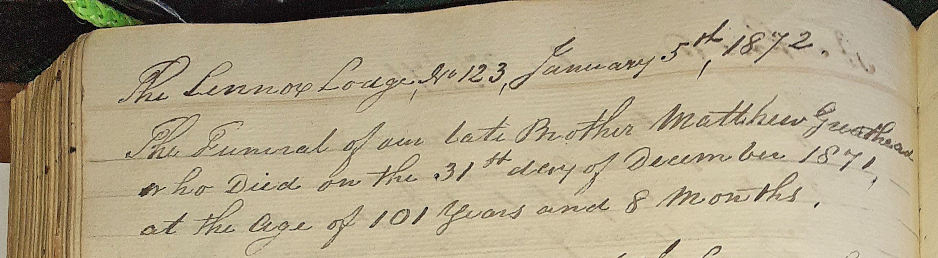 The Lennox Lodge, No 123, January 5st, 1872.
The Funeral of our late Brother Matthew Greathead
who Died on the 31st day of December 1871,
at the age of 101 Years and 8 Months.